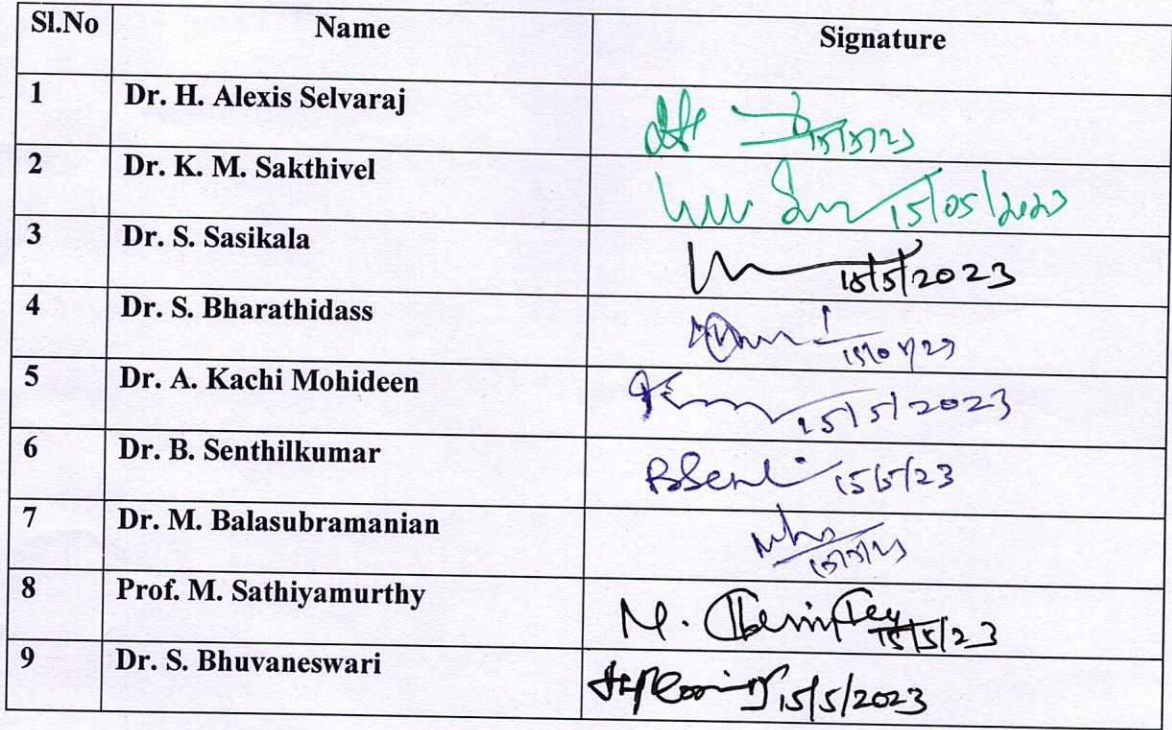 Sl.No Name Signature
1 Dr. H. Alexis Selvaraj 15/5/23
2 Dr. K. M. Sakthivel 15/05/2023
3 Dr. S. Sasikala 15/5/2023
4 Dr. S. Bharathidass
5 Dr. A. Kachi Mohideen 15/5/2023
6 Dr. B. Senthilkumar 15/5/23
7 Dr. M. Balasubramanian 15/5/23
8 Prof. M. Sathiyamurthy M. 15/5/23
9 Dr. S. Bhuvaneswari 15/5/2023